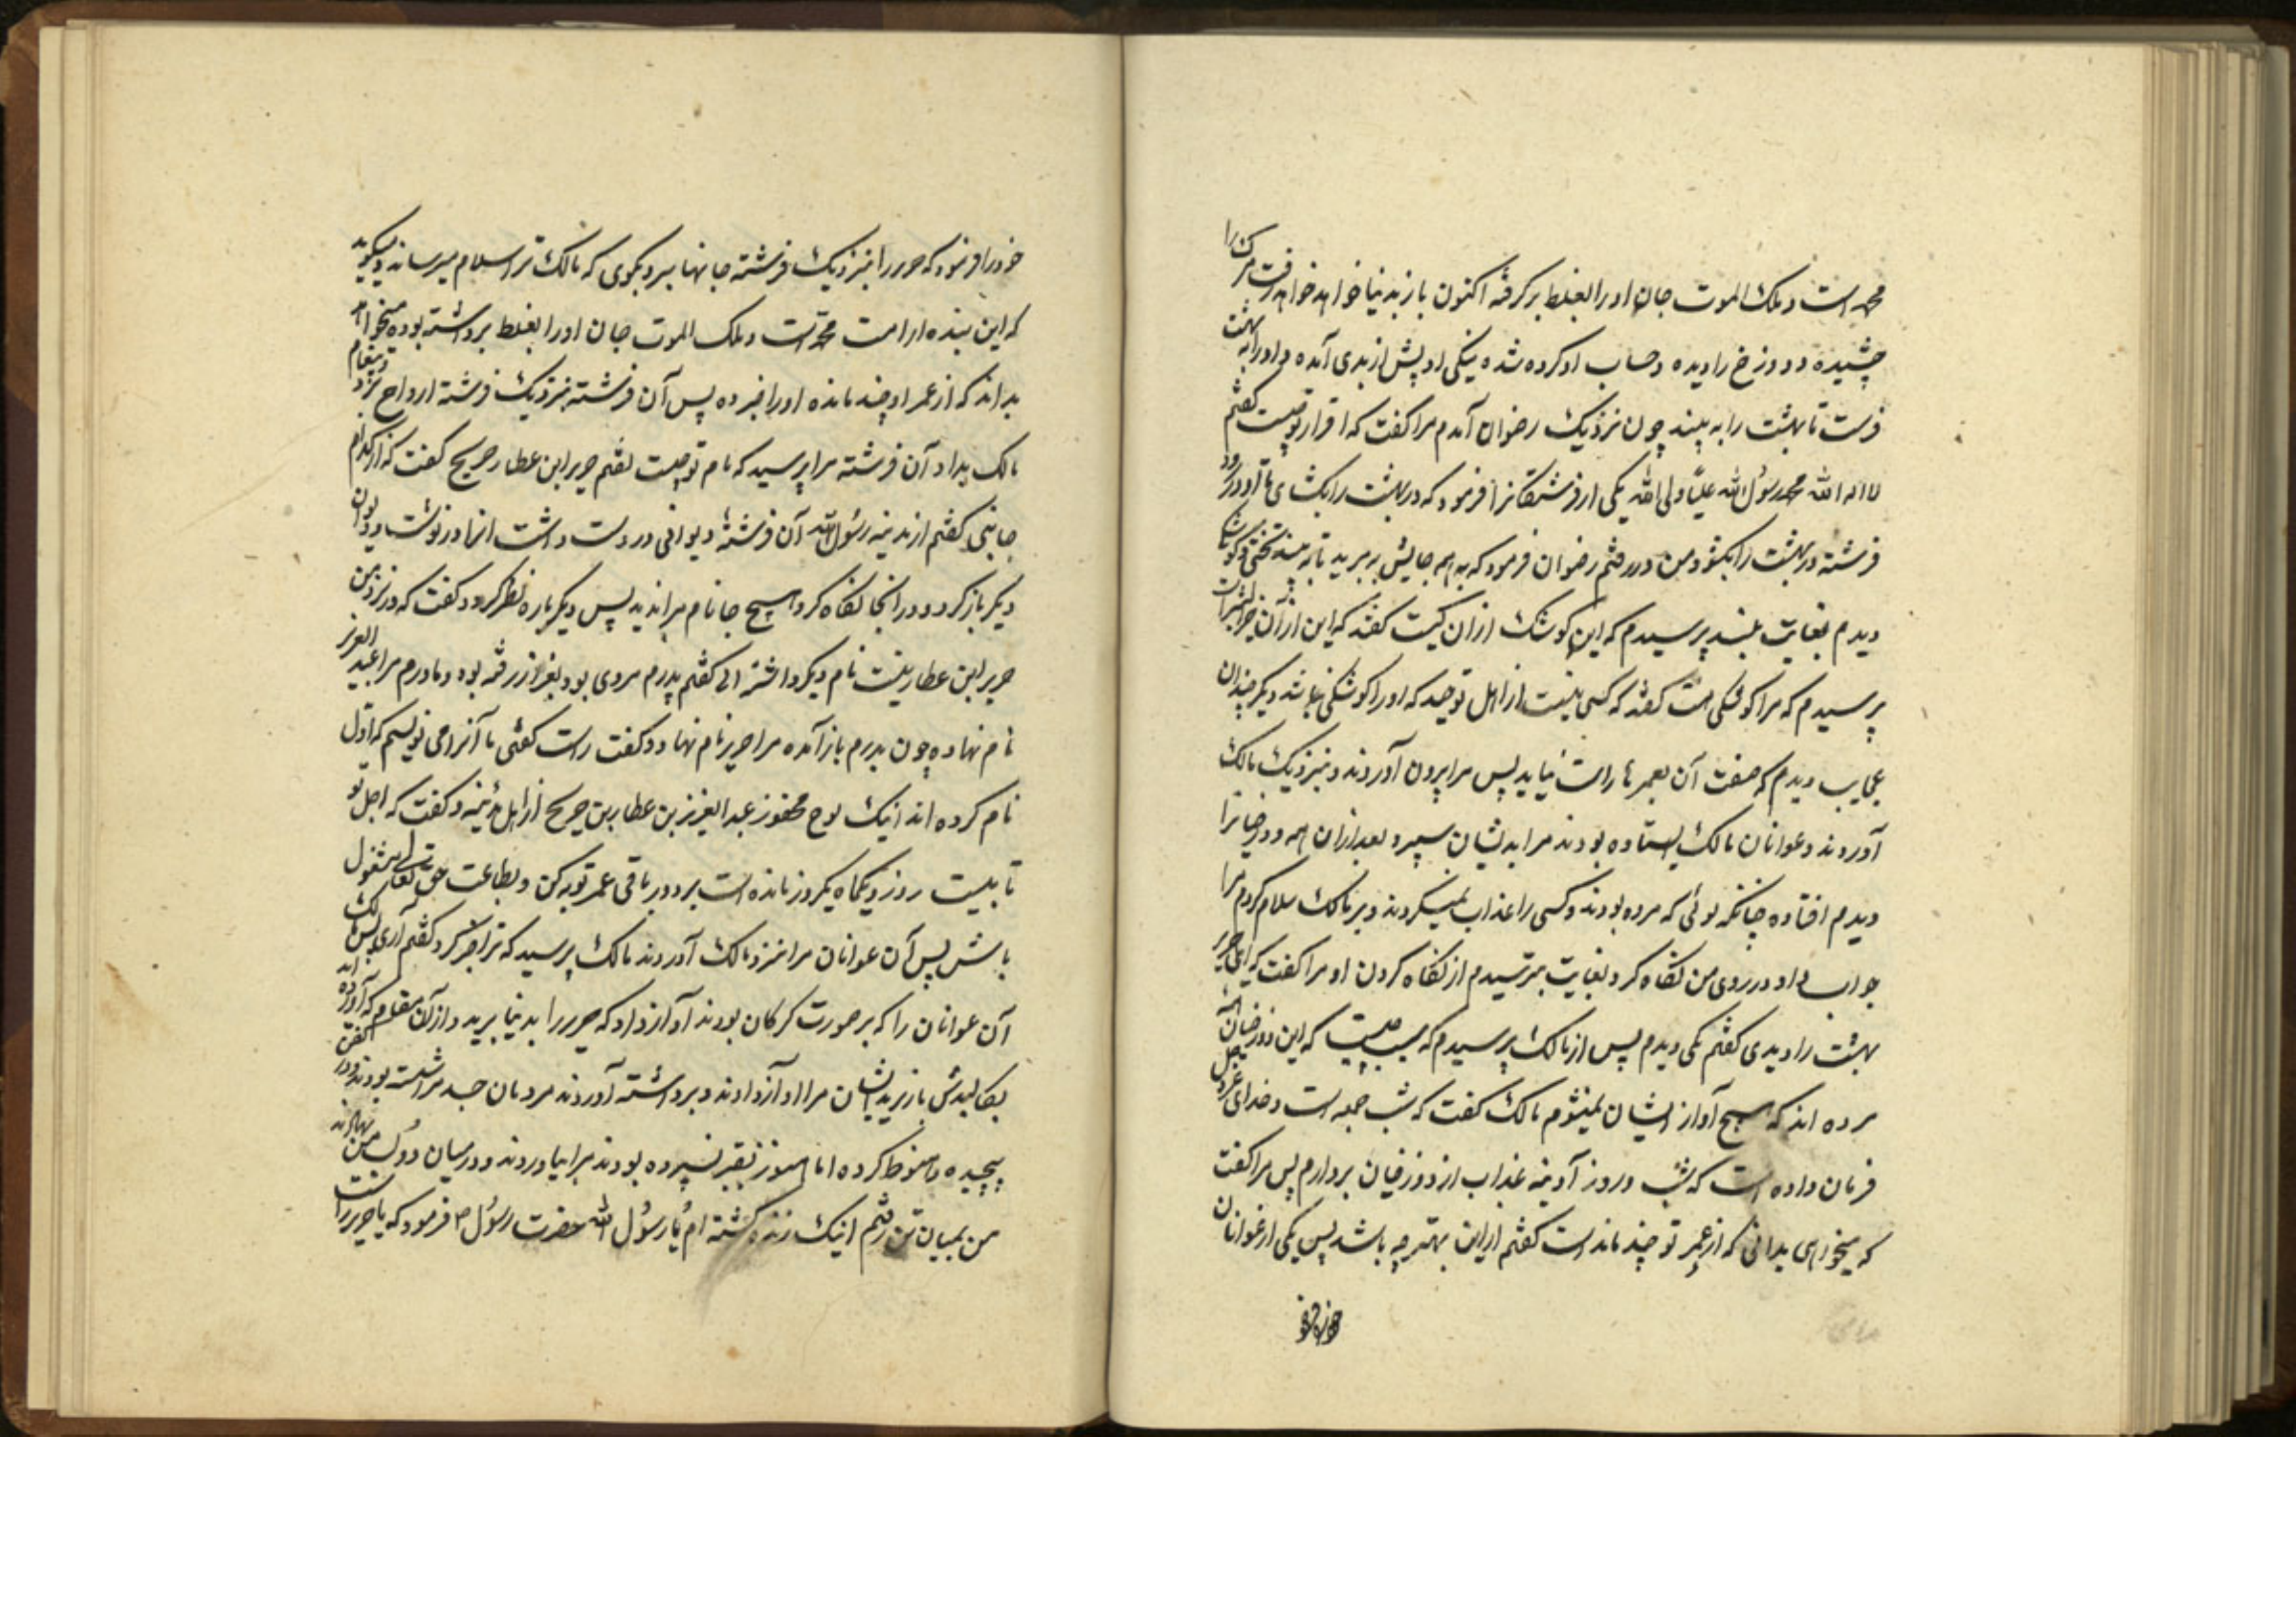 محمد است و ملک الموت جان او را بغلط برگرفته اکنون باز بدنیا خواهد خواهد رفت مرک را
چشیده و دوزخ را دیده و حساب او کرده شده نیکی او پیش از بدی آمده و او را به بهشت
فرست تا بهشت را به بیند چون نزدیک رضوان آمدم مرا گفت که اقرار تو چیست گفتم
لا اله الا الله محمد رسول الله علیا ولی الله یکی از فرشتگانرا فرمود که در بهشت را بکشای تا او در رود
فرشته در بهشت را بکشود من در رفتم رضوان فرمود که به همه جایش به برید تا به بیند تختی و کوشکها
دیدم بغایت بلند پرسیدم که این کوشک از ان کیست گفتند که این از آن
پرسیدم که مرا کوشکی هست گفتند که کسی نیست از اهل توحید که او را کوشکی نباشد دیگر چندان
عجایب دیدم که صفت آن بعمرها راست نیاید پس مرا بیرون آوردند و بنزدیک مالک
آوردند و عوانان مالک ایستاده بودند مرا بدیشان سپرد بعد ازان همه دوزخیانرا
دیدم افتاده چنانکه کوئی که مرده بودند و کسی را عذاب نمیکردند و بر مالک سلام کردم مرا
جواب داد و در روی من نگاه کرد بغایت بترسیدم از نگاه کردن او مرا گفت که ای حریر
بهشت را دیدی گفتم بلی دیدم پس از مالک پرسیدم که سبب چیست که این دوزخیان
مرده اند که هیچ آواز ایشان نمیشنوم مالک گفت که شب جمعه است و خدای عز و جل
فرمان داده است که شب و روز آدینه عذاب از دوزخیان بردارم پس مرا گفت
که میخواهی بدانی که از عمر تو چند مانده است گفتم از این بهتر چه باشد پس یکی از عوانان
خود را فرمود که حریر را بنزدیک فرشته جانها ببر و بگوی که مالک ترا سلام میرساند و میگوید
که این بنده از امت محمد است و ملک الموت جان او را بغلط برداشته بوده میخواهد
بداند که از عمر او چند مانده او را خبر ده پس آن فرشته بنزدیک فرشته ارواح برد و پیغام
مالک بداد آن فرشته مرا پرسید که نام تو چیست گفتم حریر ابن عطا بن جریح گفت که از کدام
جانبی گفتم از مدینه رسول الله آن فرشته دیوانی در دست داشت انها در نوشت و دیوان
دیگر باز کرد و در انجا نگاه کرد هیچ جا نام مرا ندید پس دیگر باره نظر کرد و گفت که در نزد من
حریر ابن عطا نیست نام دیگر داشته ای گفتم پدرم مردی بود بغزا رفته بود و مادرم مرا عبد العزیز
نام نهاده چون پدرم باز آمده مرا حریر نام نهاد و گفت راست گفتی ما آنرا می نویسیم که اول
نام کرده اند اینک لوح محفوظ عبد العزیز بن عطا بن جریح از اهل مدینه و گفت که اجل تو
تا بیست روز و یکماه یکروز مانده است برو در باقی عمر توبه کن و بطاعت حق تعالی مشغول
باش پس آن عوانان مرا بنزد مالک آوردند مالک پرسید که ترا خبر کرد گفتم آری پس مالک
آن عوانان را که بر صورت گرگان بودند آواز داد که حریر را بدنیا برید و از آن مقام که آورده اند
بکالبدش باز برید ایشان مرا آواز دادند و برداشته آوردند مردمان جسد مرا شسته بودند و در کفن
پیچیده و حنوط کرده اما هنوز بقبر نسپرده بودند مرا بیاوردند و در میان
من بمیان تن رفتم اینک زنده گشته ام یا رسول الله حضرت رسول ص فرمود که یا حریر راست